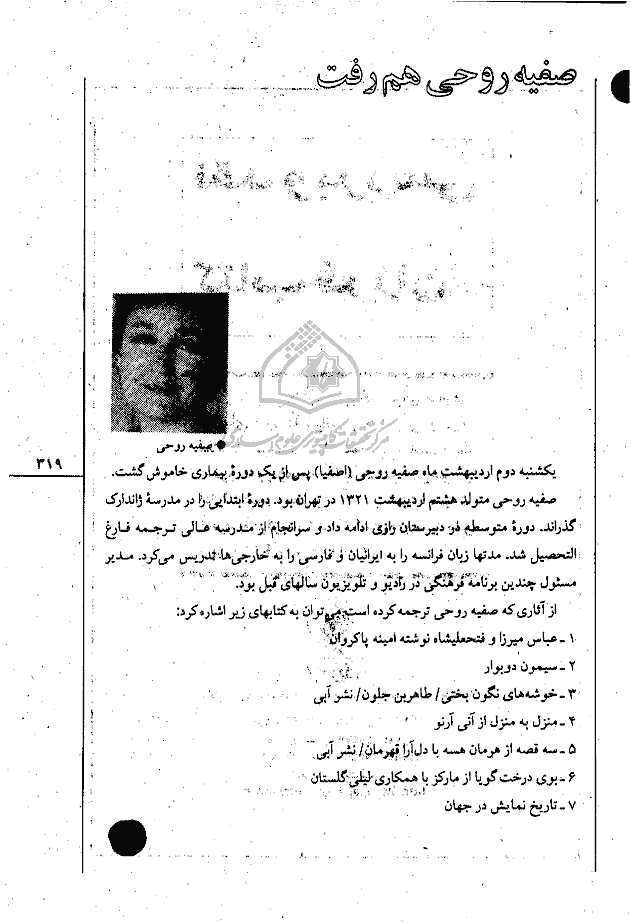 صفیه روحی هم رفت
مرکز تحقیقات کامپیوتری علوم اسلامی
● صفیه روحی
۳۱۹
یکشنبه دوم اردیبهشت ماه صفیه روحی (اصفیا) پس از یک دورهٔ بیماری خاموش گشت.
صفیه روحی متولد هشتم اردیبهشت ۱۳۲۱ در تهران بود. دورهٔ ابتدایی را در مدرسهٔ ژاندارک
گذراند. دورهٔ متوسطه در دبیرستان رازی ادامه داد و سرانجام از مدرسه عالی ترجمه فارغ
التحصیل شد. مدتها زبان فرانسه را به ایرانیان و فارسی را به خارجی‌ها تدریس می‌کرد. مدیر
مسئول چندین برنامه فرهنگی در رادیو و تلویزیون سالهای قبل بود.
از آثاری که صفیه روحی ترجمه کرده است می‌توان به کتابهای زیر اشاره کرد:
۱ ـ عباس میرزا و فتحعلیشاه نوشته امینه پاکروان
۲ ـ سیمون دوبوار
۳ ـ خوشه‌های نگون بختی / طاهربن جلون / نشر آبی
۴ ـ منزل به منزل از آنی آرنو
۵ ـ سه قصه از هرمان هسه با دل‌آرا قهرمان / نشر آبی
۶ ـ بوی درخت گویا از مارکز با همکاری لیلی گلستان
۷ ـ تاریخ نمایش در جهان